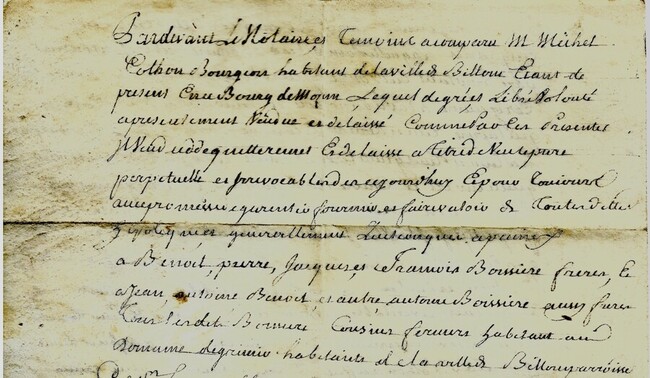 Pardevant Le Notaire et Temoins a comparu Mr Michel
Cothon Bourgeois habitant de la ville de Billom Etant de
present En ce Bourg de Lequel de grées Libre volonté
a presentement Vendue et délaissé Comme Par Ces Presentes
il Vend Et delaisse a titre de Vente pure
perpetuelle et jrrevocable des aujourdhuy Et pour Toujours
avec promesse garentir fournir et faire valoir de Toutes dettes
ypoteques generallement quelconques a peine
a Benoit, pierre, Jacques, et Francois Boissiere freres, Et
a Jean, antoine Benoit, et autre antoine Boissiere aussy freres
Tous Lesdits Boissiere Cousins habitant au
Domaine habitants de la ville de Billom parroisse